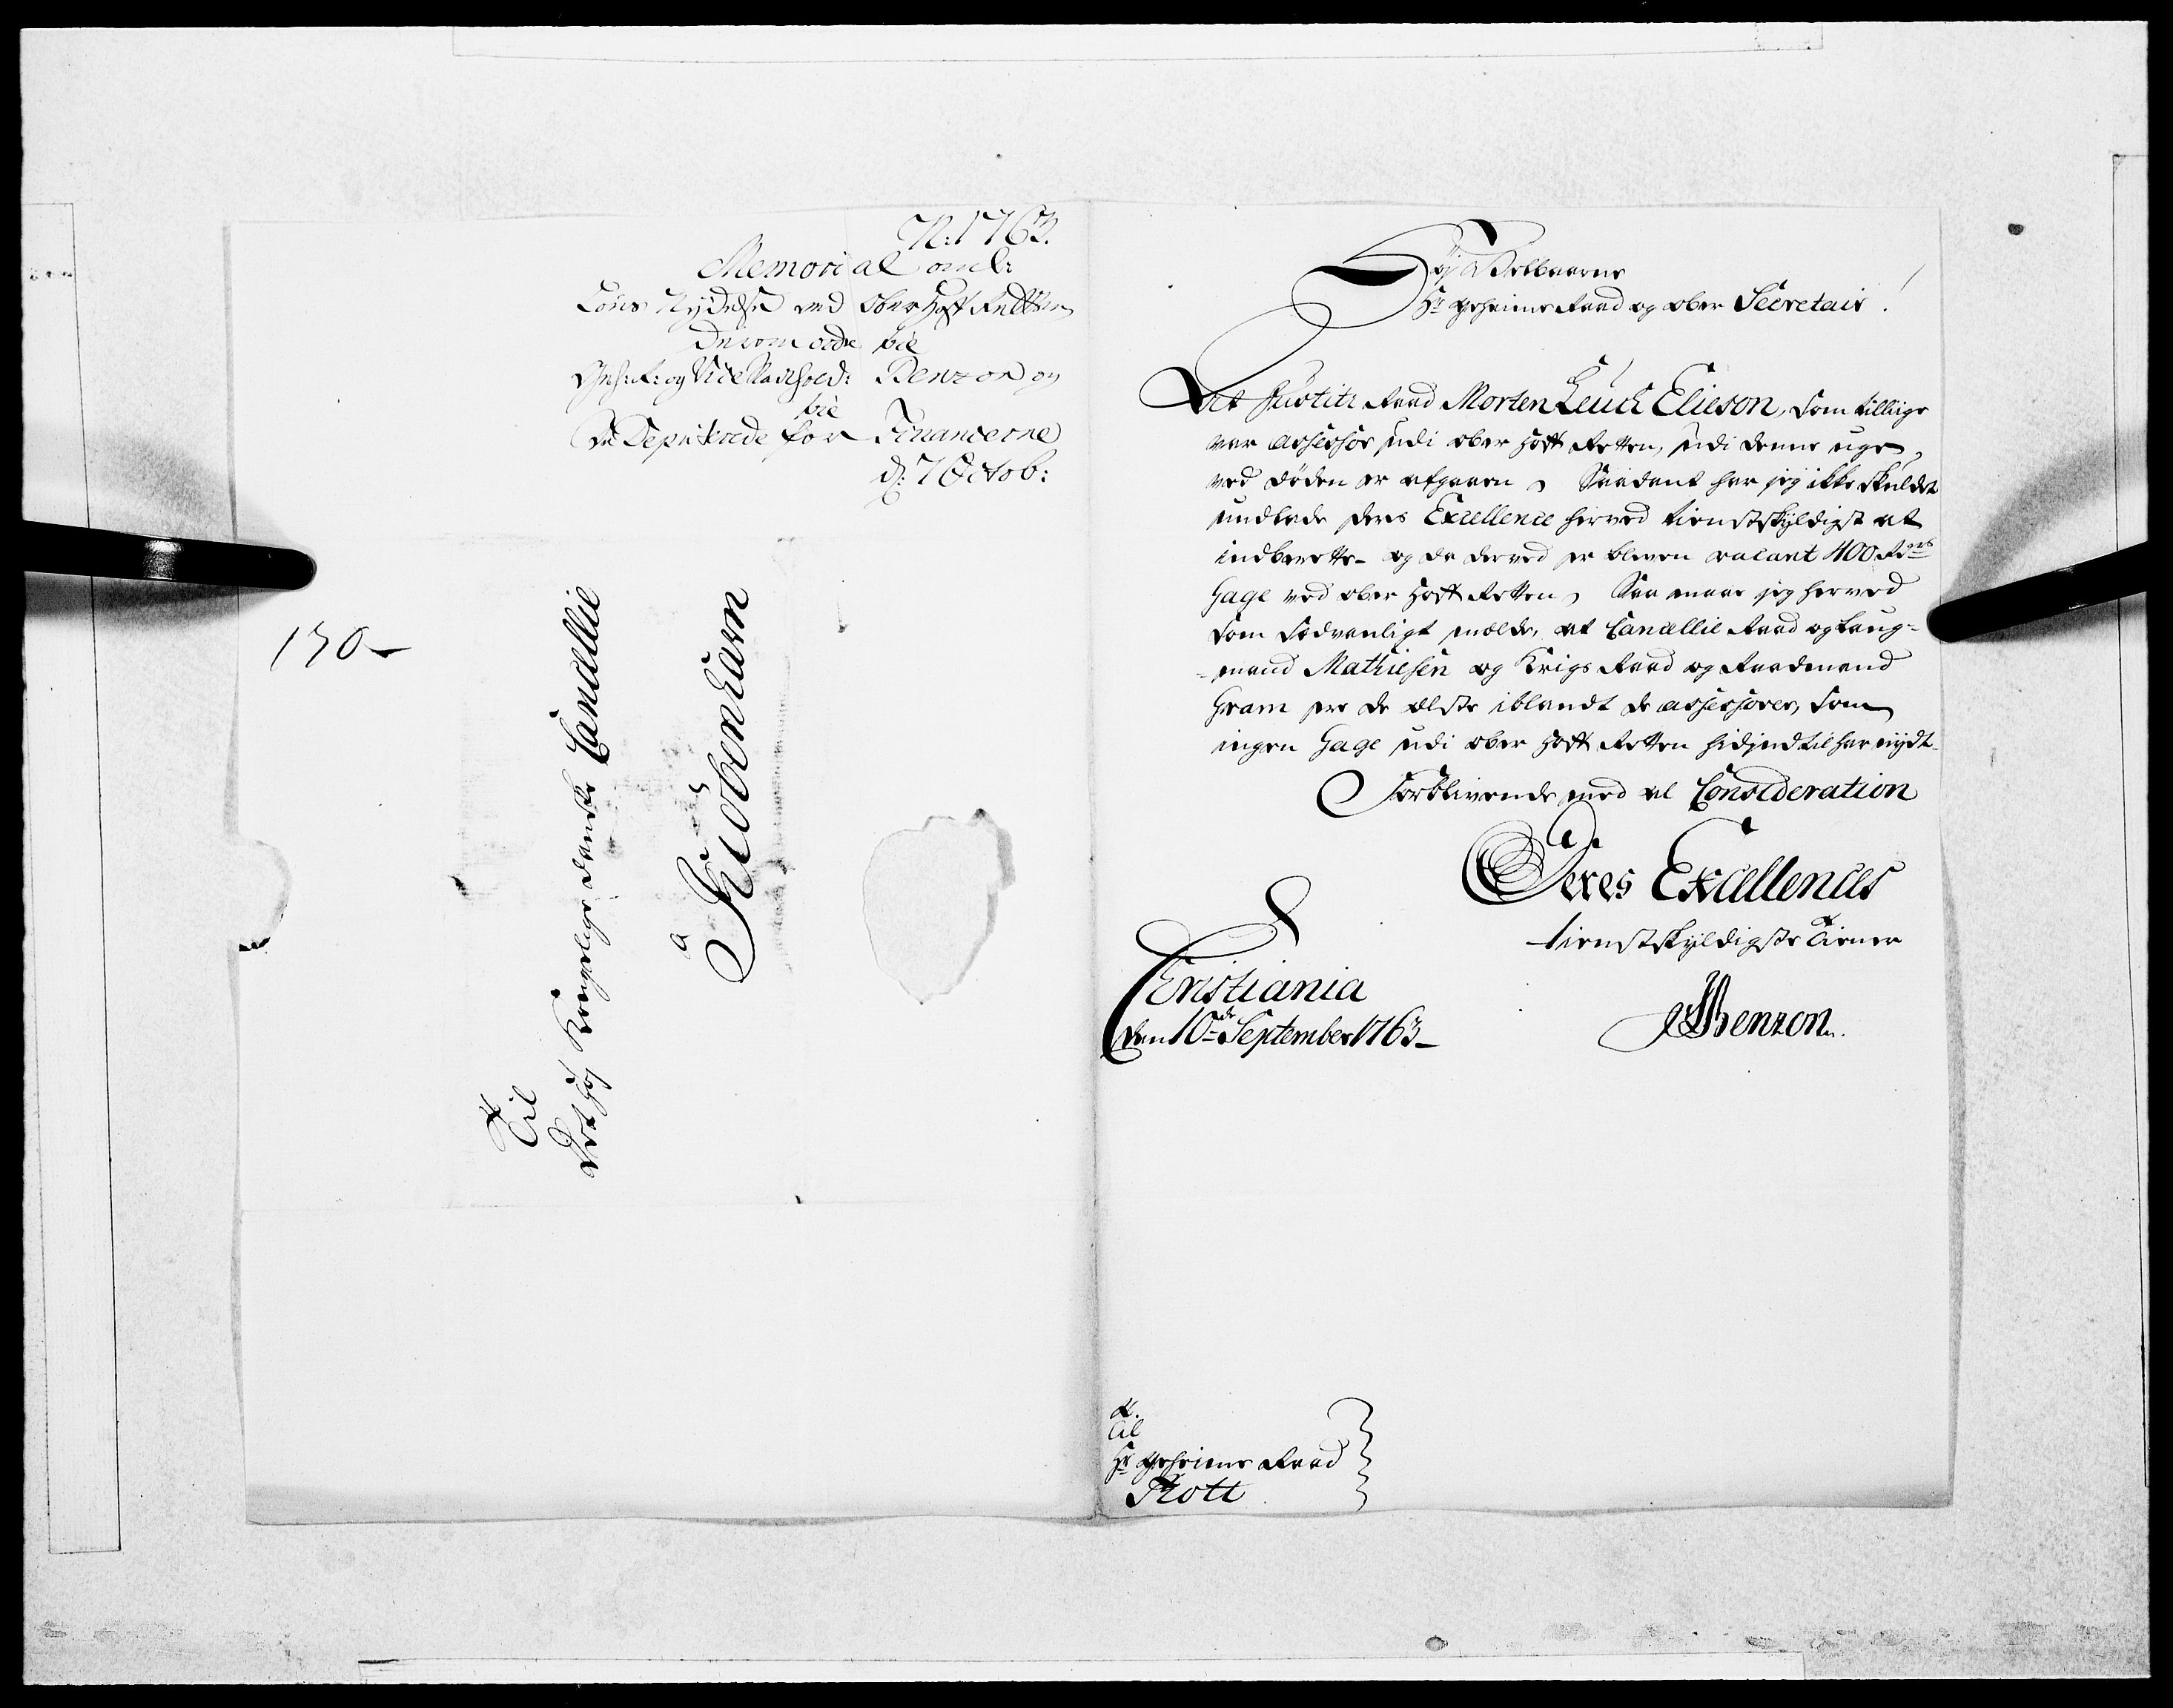 N: 1763.
Memorial anl:
Løns Nydelse ved Ober Hoff Retten
Geh: R: og Vice Statthold: Benzon og
De Deputerede for Financerne
d: 7 Octob:
130
Til
Det Høy Kongelige Danske Cancellie
a
Kiøbenhavn
Høy Velbaarne
Hr Geheime Raad og Ober Secretair!
At Justitz Raad Morten Leuch Elieson, som tillige
var Assessor udi Ober Hoff Retten, udi denne uge,
ved Døden er afgaaen, Saadant har jeg ikke skuldet
undlade Deres Excellence herved tienstskyldigst at
indberette - og da derved er bleven vacant 400 Rdrs
Gage ved Ober Hoff Retten, Saa maae jeg herved
som sædvanligt melde, at Cancellie Raad og Laug-
-mand Mathiesen og Krigs Raad og Raadmand
Gram ere de ælste iblandt de Assessorer, som
ingen Gage udi Ober Hoff Retten hidindtil har nydt.
Forblivende med al Consideration
Deres Excellences
tienstskyldigste Tiener
Christiania
den 10de September 1763
Benzon.
Til
Hr Geheime Raad
Thott